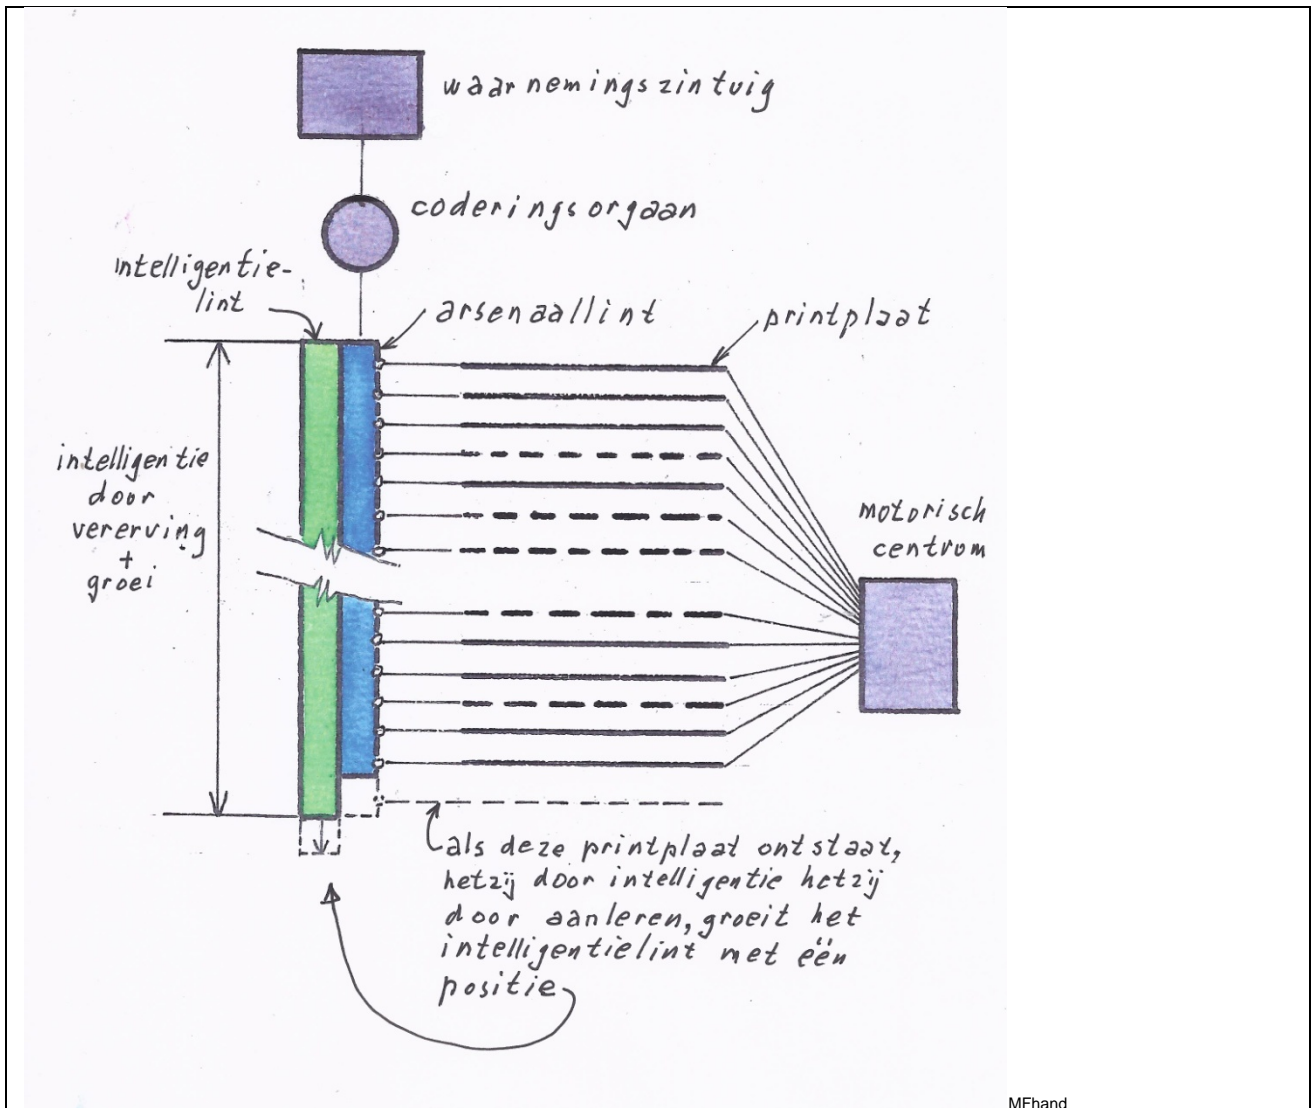 waarnemingszintuig
coderingsorgaan
intelligentie-
lint
arsenaallint
printplaat
intelligentie
door
vererving
+
groei
motorisch
centrom
als deze printplaat ontstaat,
hetzij door intelligentie hetzij
door aanleren, groeit het
intelligentielint met ëën
positie
MFhand